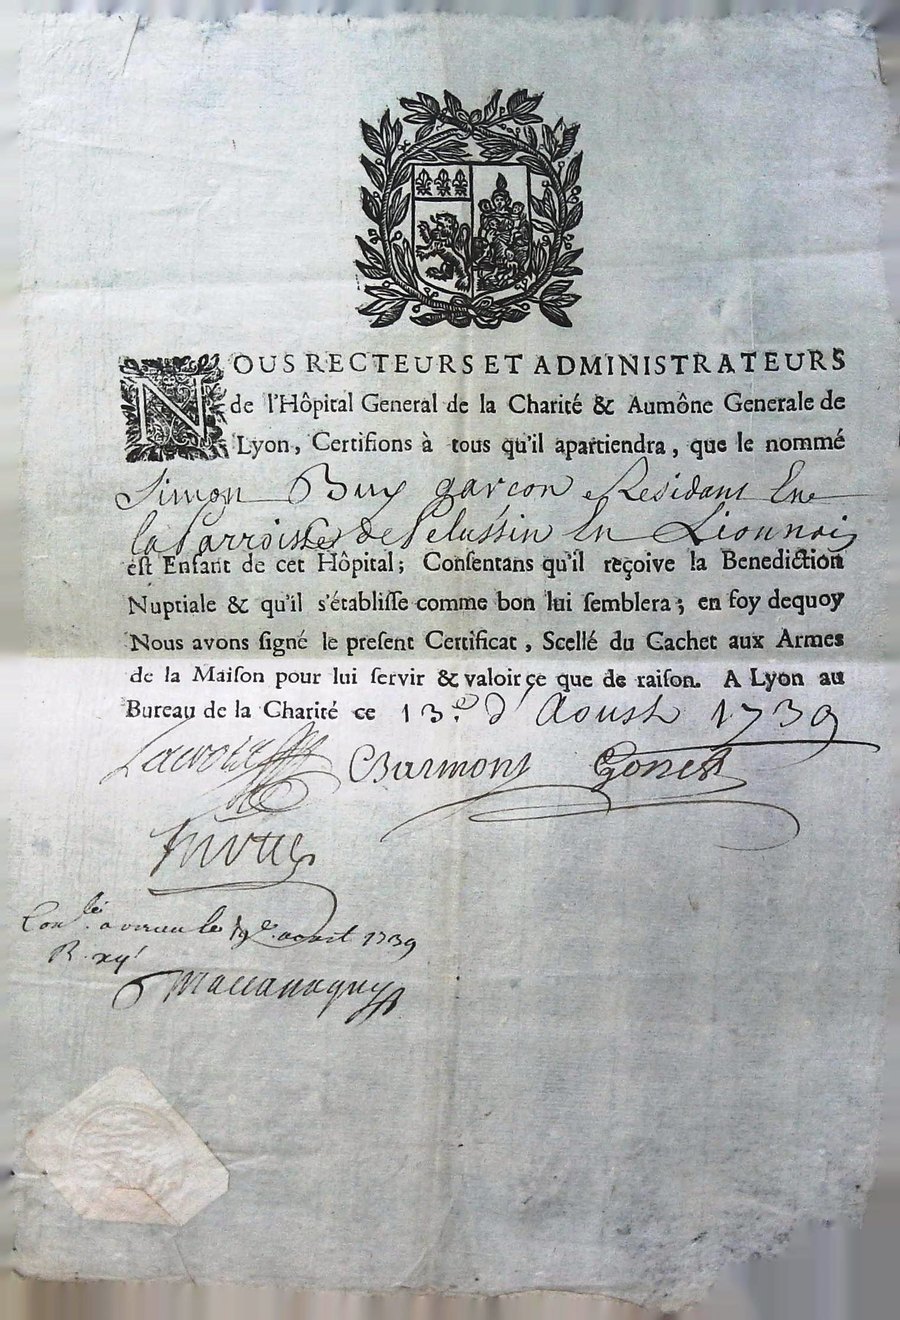 NOUS RECTEURS ET ADMINISTRATEURS
de l'Hôpital General de la Charité & Aumône Generale de
Lyon, Certifions à tous qu'il apartiendra, que le nommé
Simon Buy garçon Residant En
la Parroisse de Pelussin En Lionnois
est Enfant de cet Hôpital; Consentans qu'il reçoive la Benediction
Nuptiale & qu'il s'établisse comme bon lui semblera; en foy dequoy
Nous avons signé le present Certificat, Scellé du Cachet aux Armes
de la Maison pour lui servir & valoir ce que de raison. A Lyon au
Bureau de la Charité ce 13.e d'Aoust 1739
Lacroix Barmont Gonet
Con.lé a le 19e aoust 1739